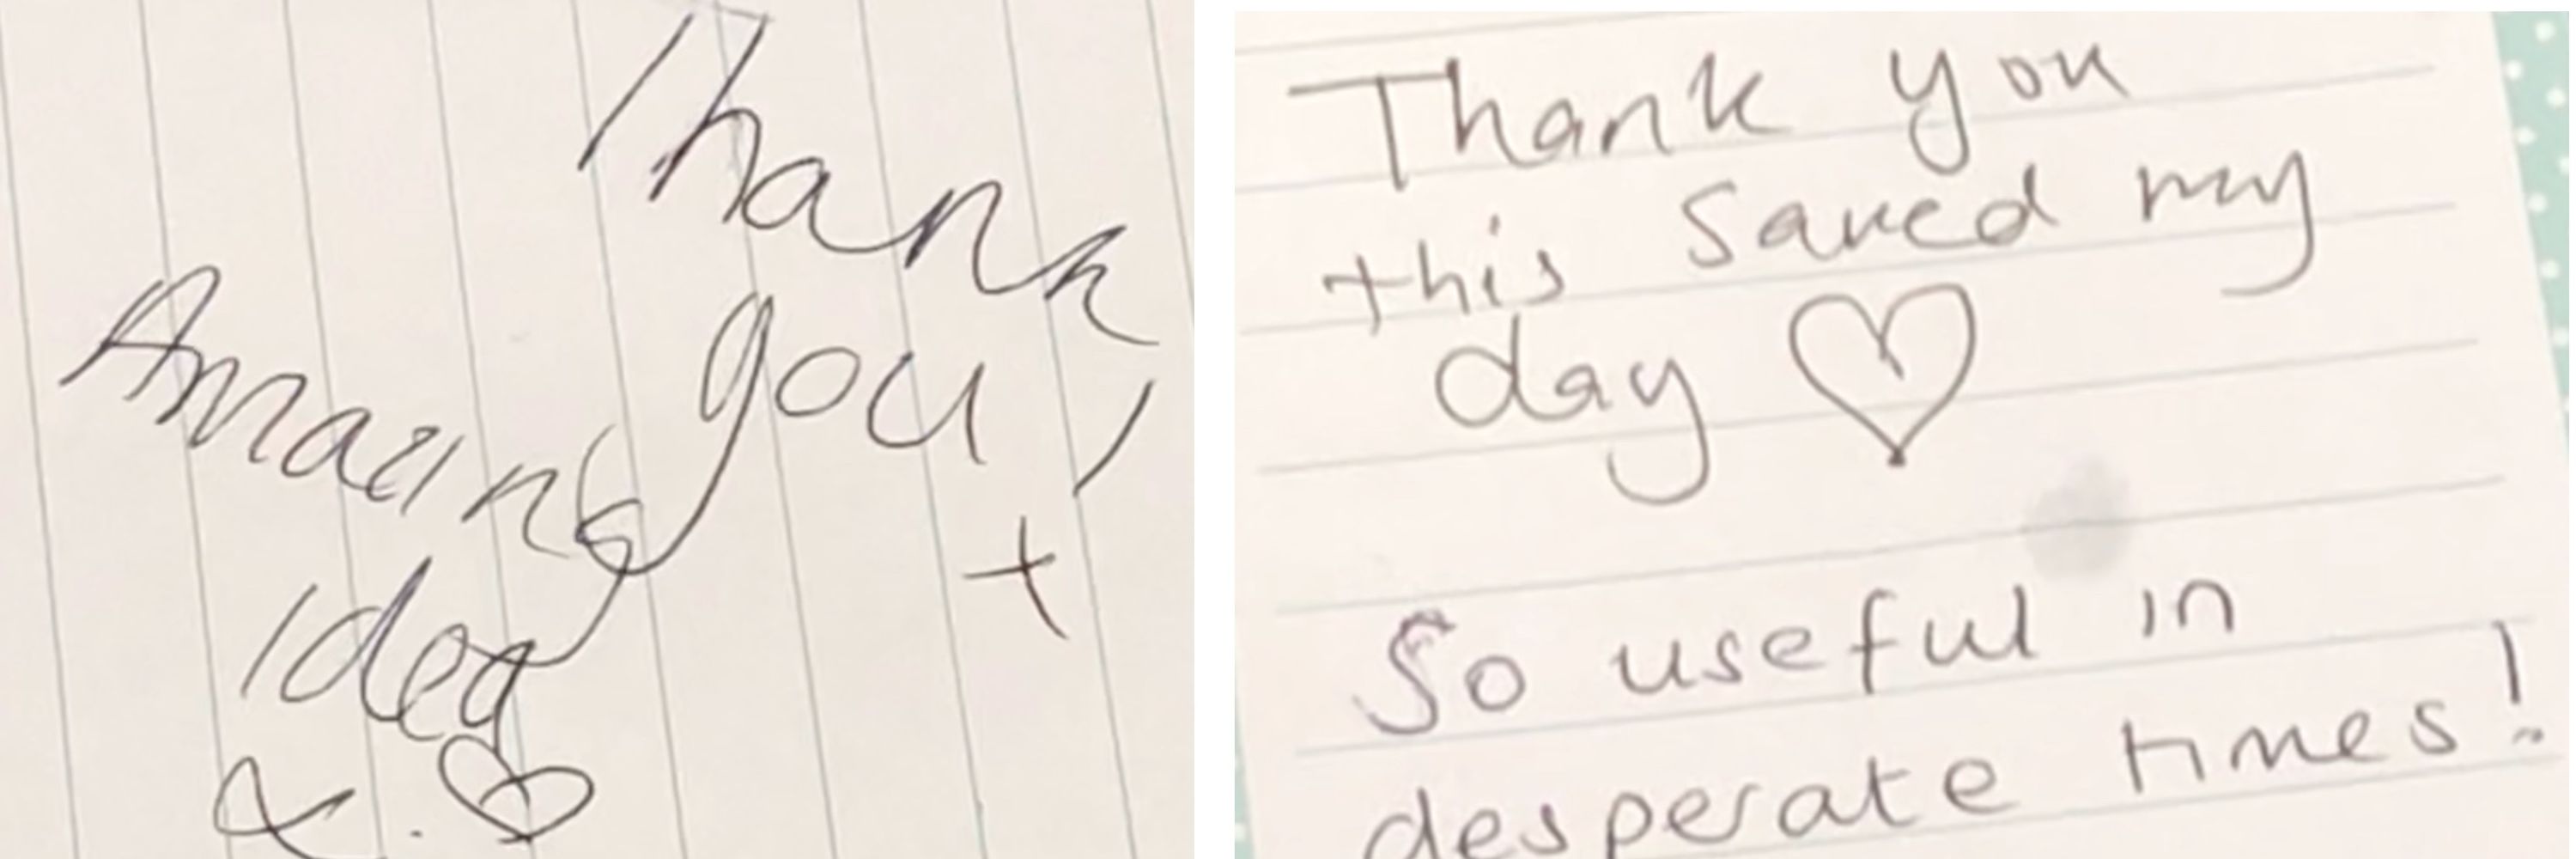 Thank
you,
Amazing
Idea
x
Thank you
this saved my
day
So useful in
desperate times!